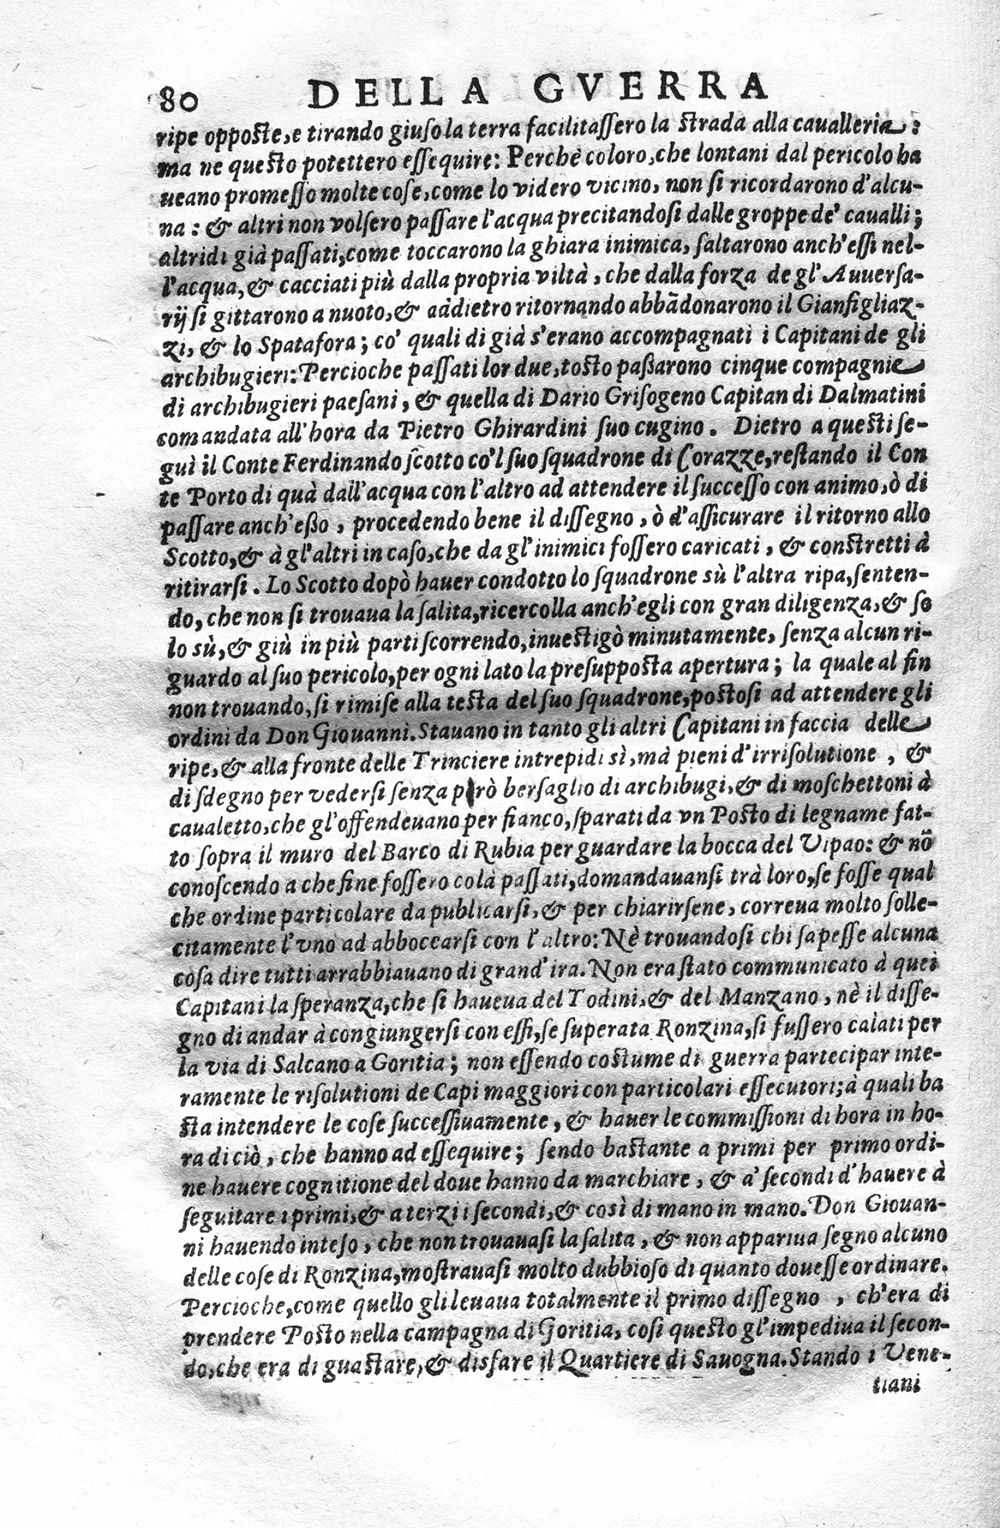 80 DELLA GVERRA
ripe opposte, e tirando giuso la terra facilitassero la strada alla caualleria :
ma ne questo potettero essequire: Perchè coloro, che lontani dal pericolo ha
ueano promesso molte cose, come lo videro vicino, non si ricordarono d'alcu-
na : & altri non volsero passare l'acqua precitandosi dalle groppe de' caualli ;
altri di già passati, come toccarono la ghiara inimica, saltarono anch'essi nel-
l'acqua, & cacciati più dalla propria viltà, che dalla forza de gl'Auuersa-
rij si gittarono a nuoto, & addietro ritornando abbãdonarono il Gianfigliaz-
zi, & lo Spatafora ; co' quali di già s'erano accompagnati i Capitani de gli
archibugieri : Percioche passati lor due, tosto paßarono cinque compagnie
di archibugieri paesani, & quella di Dario Grisogeno Capitan di Dalmatini
comandata all'hora da Pietro Ghirardini suo cugino. Dietro a questi se-
guì il Conte Ferdinando scotto co'l suo squadrone di Corazze, restando il Con
te Porto di quà dall'acqua con l'altro ad attendere il successo con animo, ò di
passare anch'eßo, procedendo bene il dissegno, ò d'assicurare il ritorno allo
Scotto, & à gl'altri in caso, che da gl'inimici fossero caricati, & constretti à
ritirarsi. Lo Scotto dopò hauer condotto lo squadrone sù l'altra ripa, senten-
do, che non si trouaua la salita, ricercolla anch'egli con gran diligenza, & so
lo sù, & giù in più parti scorrendo, inuestigò minutamente, senza alcun ri-
guardo al suo pericolo, per ogni lato la presupposta apertura ; la quale al fin
non trouando, si rimise alla testa del suo squadrone, postosi ad attendere gli
ordini da Don Giouanni. Stauano in tanto gli altri Capitani in faccia delle
ripe, & alla fronte delle Trinciere intrepidi sì, mà pieni d'irrisolutione, &
di sdegno per vedersi senza però bersaglio di archibugi, & di moschettoni à
caualetto, che gl'offendeuano per fianco, sparati da vn Posto di legname fat-
to sopra il muro del Barco di Rubia per guardare la bocca del Vipao: & nõ
conoscendo a che fine fossero colà passati, domandauansi trà loro, se fosse qual
che ordine particolare da publicarsi, & per chiarirsene, correua molto solle-
citamente l'vno ad abboccarsi con l'altro: Nè trouandosi chi sapesse alcuna
cosa dire tutti arrabbiauano di grand'ira. Non era stato communicato à quei
Capitani la speranza, che si haueua del Todini, & del Manzano, nè il disse-
gno di andar à congiungersi con essi, se superata Ronzina, si fussero calati per
la via di Salcano a Goritia ; non essendo costume di guerra partecipar inte-
ramente le risolutioni de Capi maggiori con particolari essecutori; à quali ba
sta intendere le cose successiuamente, & hauer le commissioni di hora in ho-
ra di ciò, che hanno ad essequire ; sendo bastante a primi per primo ordi-
ne hauere cognitione del doue hanno da marchiare, & a' secondi d'hauere à
seguitare i primi, & a terzi i secondi, & così di mano in mano. Don Giouan-
ni hauendo inteso, che non trouauasi la salita, & non appariua segno alcuno
delle cose di Ronzina, mostrauasi molto dubbioso di quanto douesse ordinare.
Percioche, come quello gli leuaua totalmente il primo dissegno, ch'era di
prendere Posto nella campagna di Goritia, così questo gl'impediua il secon-
do, che era di guastare, & disfare il Quartiere di Sauogna. Stando i Vene-
tiani